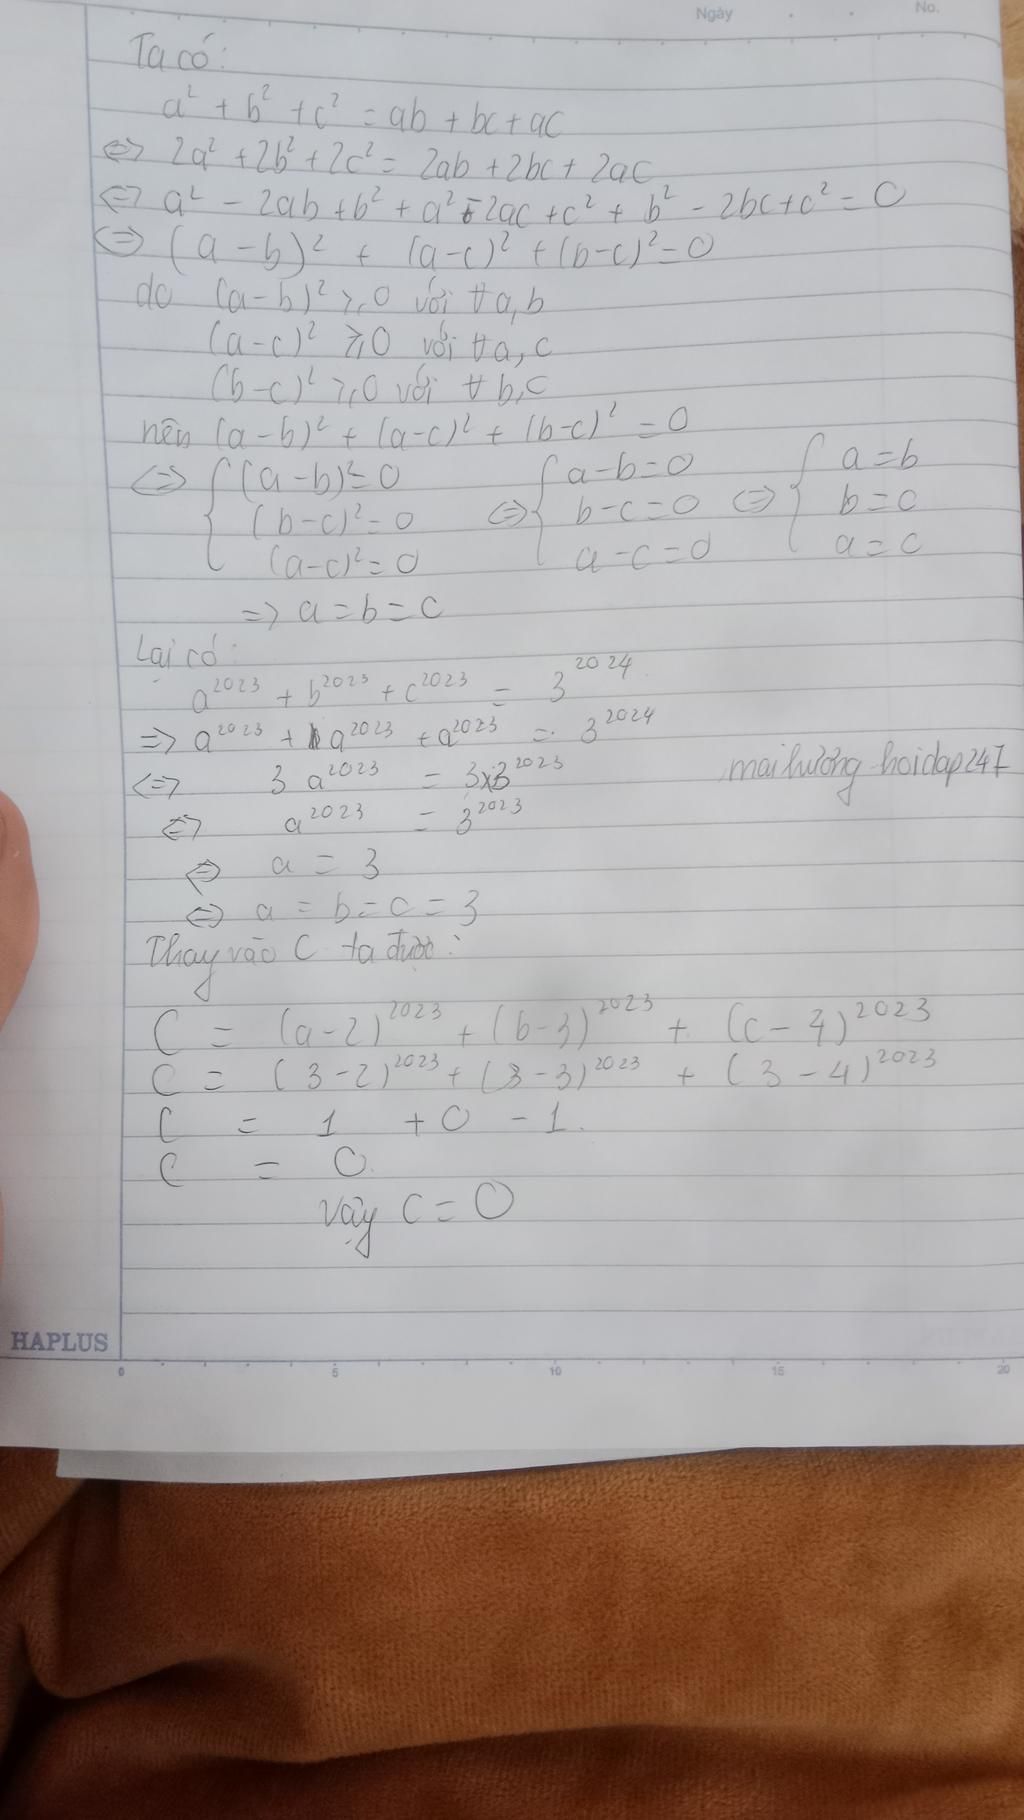 Ngày No.
Ta có:
a² + b² + c² = ab + bc + ac
⇔ 2a² + 2b² + 2c² = 2ab + 2bc + 2ac
⇔ a² - 2ab + b² + a² - 2ac + c² + b² - 2bc + c² = 0
⇔ (a - b)² + (a-c)² + (b-c)² = 0
do (a-b)² ≥ 0 với ∀ a, b
(a-c)² ≥ 0 với ∀ a, c
(b-c)² ≥ 0 với ∀ b, c
nên (a-b)² + (a-c)² + (b-c)² = 0
⇔ { (a-b)² = 0 ⇔ { a-b=0 ⇔ { a=b
(b-c)² = 0 b-c=0 b=c
(a-c)² = 0 a-c=0 a=c
=> a = b = c
Lại có:
a²⁰²³ + b²⁰²³ + c²⁰²³ = 3²⁰²⁴
=> a²⁰²³ + a²⁰²³ + a²⁰²³ = 3²⁰²⁴
⇔ 3 a²⁰²³ = 3x3²⁰²³
maihương-hoidap247
⇔ a²⁰²³ = 3²⁰²³
⇔ a = 3
⇔ a = b = c = 3
Thay vào C ta được:
C = (a-2)²⁰²³ + (b-3)²⁰²³ + (c-4)²⁰²³
C = (3-2)²⁰²³ + (3-3)²⁰²³ + (3-4)²⁰²³
C = 1 + 0 - 1.
C = 0.
Vậy C = 0
HAPLUS
0 5 10 15 20